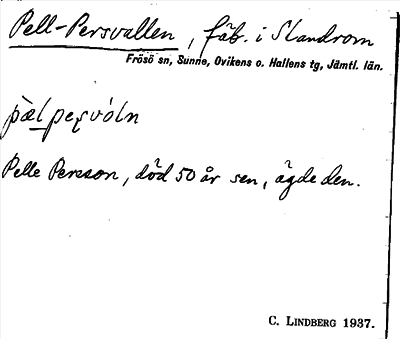 Pell-Persvallen, fäb. i Slandrom
Frösö sn, Sunne, Ovikens o. Hallens tg, Jämtl. län.
pæ̀l peʂvóln
Pelle Persson, död 50 år sen, ägde den.
C. LINDBERG 1937.